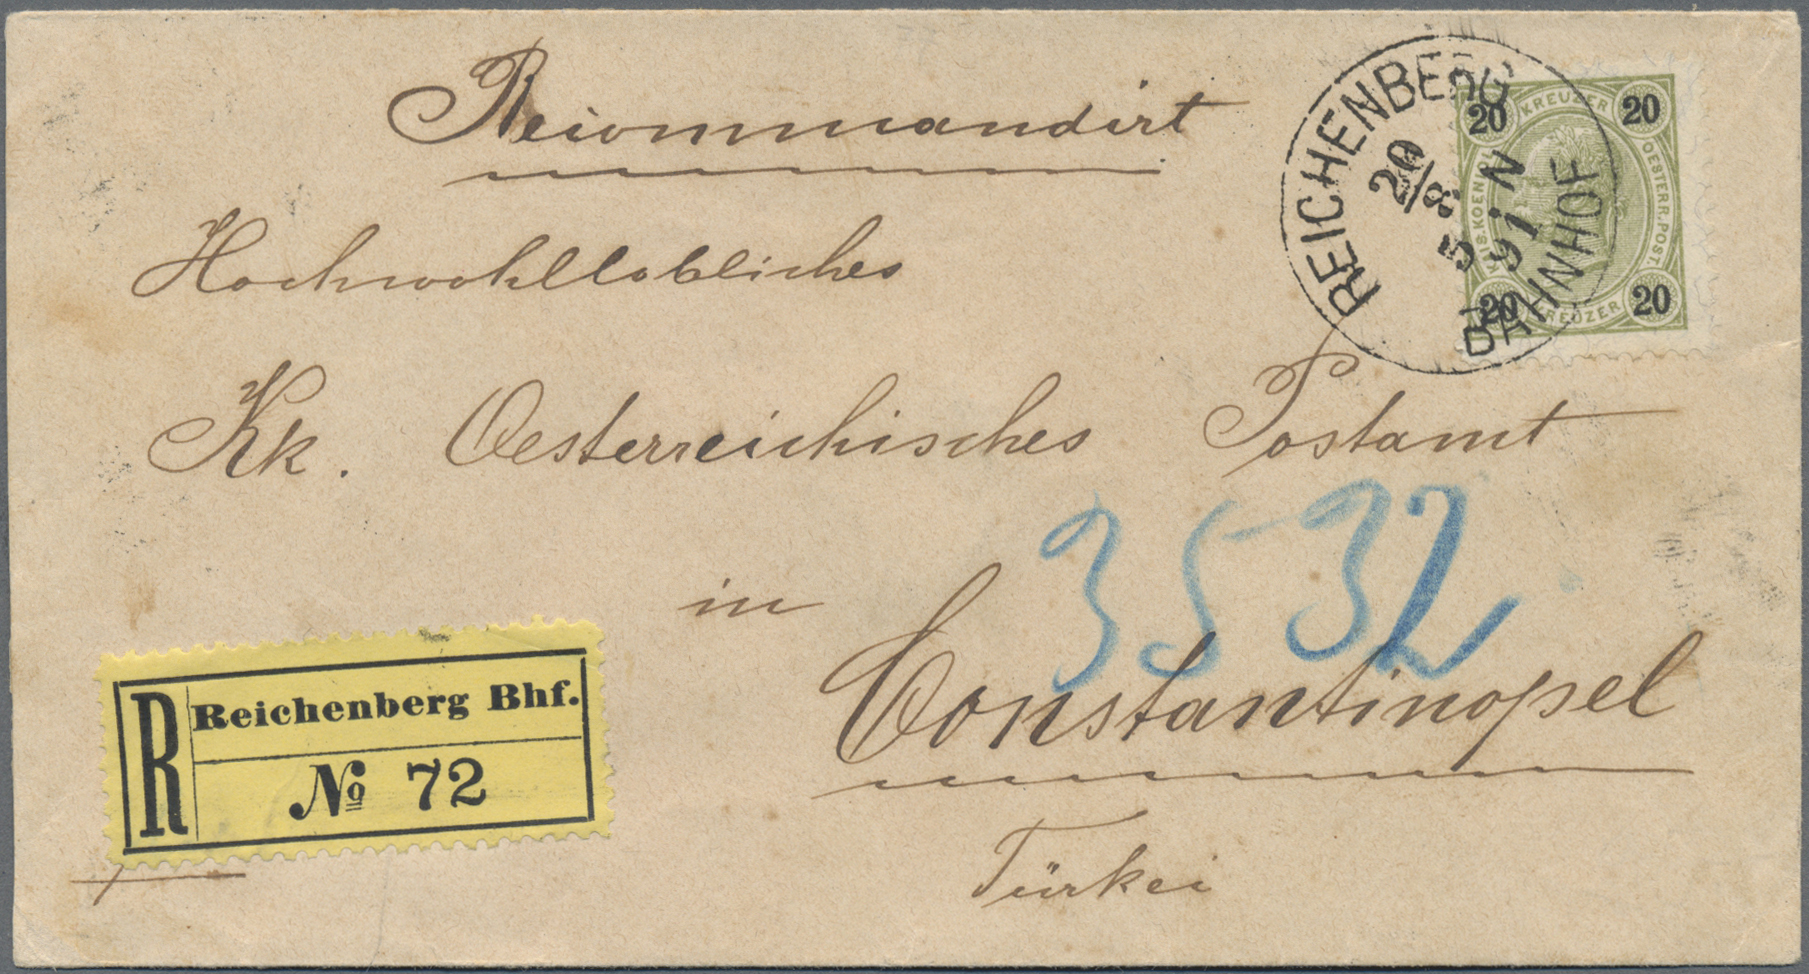 Recommandirt
REICHENBERG
20/8
5 N
91
BAHNHOF
20 KREUZER 20
KAIS.KOENIGL. OESTERR.POST.
20 KREUZER 20
Hochwohllobliches
Kk. Oesterreichisches Postamt
3532
in
Constantinopel
R Reichenberg Bhf.
No 72
Türkei